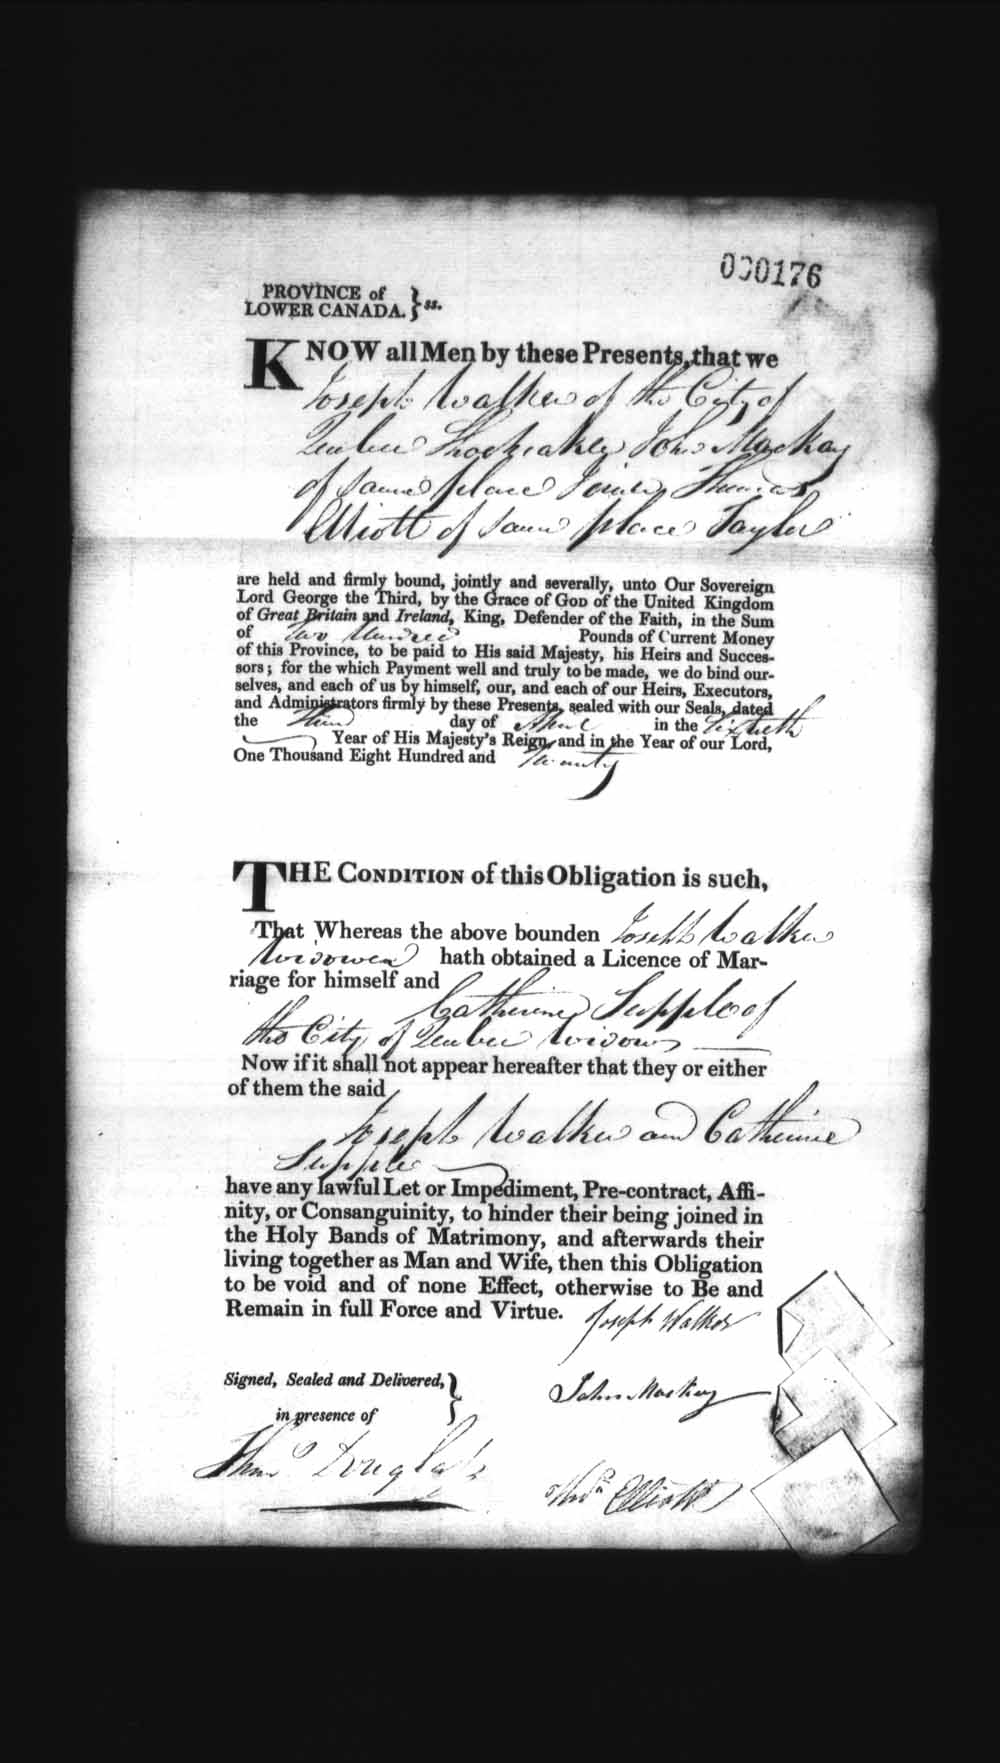 000176
PROVINCE of
LOWER CANADA. } ss.
KNOW all Men by these Presents, that we
Joseph Walker of the City of
Quebec John Mackay
of same place Joiner Thomas
Elliott of same place Taylor
are held and firmly bound, jointly and severally, unto Our Sovereign
Lord George the Third, by the Grace of GOD of the United Kingdom
of Great Britain and Ireland, King, Defender of the Faith, in the Sum
of Two Hundred Pounds of Current Money
of this Province, to be paid to His said Majesty, his Heirs and Succes-
sors; for the which Payment well and truly to be made, we do bind our-
selves, and each of us by himself, our, and each of our Heirs, Executors,
and Administrators firmly by these Presents, sealed with our Seals, dated
the Third day of April in the Sixtieth
Year of His Majesty's Reign, and in the Year of our Lord,
One Thousand Eight Hundred and Twenty
THE CONDITION of this Obligation is such,
That Whereas the above bounden Joseph Walker
Widower hath obtained a Licence of Mar-
riage for himself and
Catherine Supple of
the City of Quebec Widow
Now if it shall not appear hereafter that they or either
of them the said
Joseph Walker and Catherine
Supple
have any lawful Let or Impediment, Pre-contract, Affi-
nity, or Consanguinity, to hinder their being joined in
the Holy Bands of Matrimony, and afterwards their
living together as Man and Wife, then this Obligation
to be void and of none Effect, otherwise to Be and
Remain in full Force and Virtue.
Joseph Walker
Signed, Sealed and Delivered, }
in presence of
John Mackay
Thos Douglass
Thos Elliott